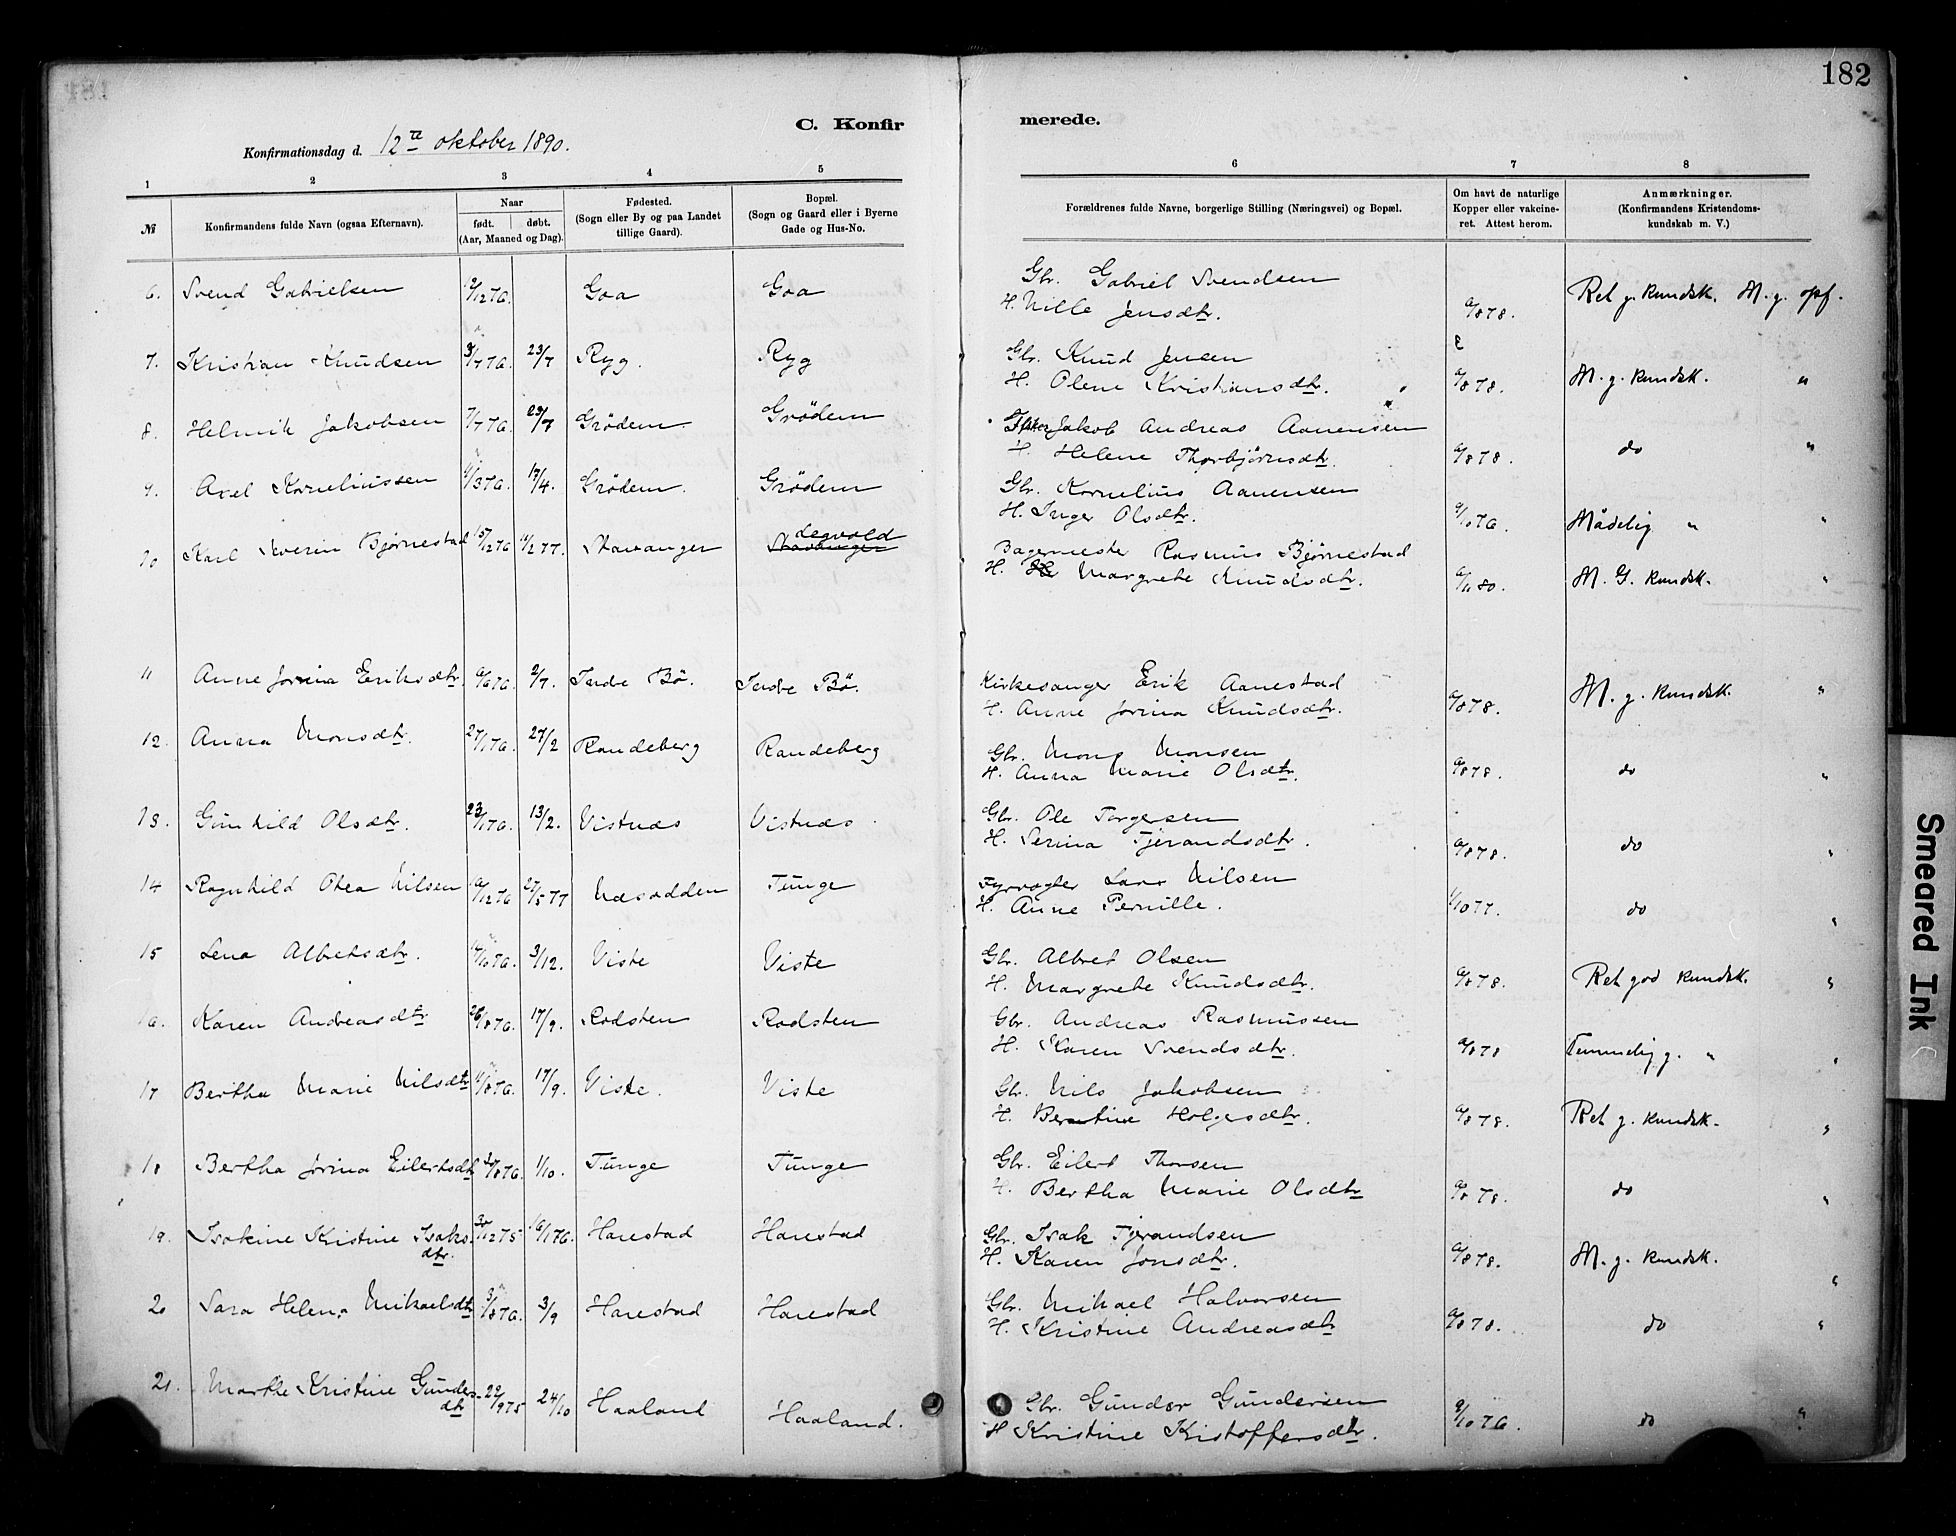 182
C. Konfirmerede.
Konfirmationsdag d. 12te oktober 1890.
1 2 3 4 5 6 7 8
№ Konfirmandens fulde Navn (ogsaa Efternavn). Naar født. døbt. (Aar, Maaned og Dag). Fødested. (Sogn eller By og paa Landet tillige Gaard). Bopæl. (Sogn og Gaard eller i Byerne Gade og Hus-No. Forældrenes fulde Navne, borgerlige Stilling (Næringsvei) og Bopæl. Om havt de naturlige Kopper eller vakcineret. Attest herom. Anmærkninger. (Konfirmandens Kristendomskundskab m. V.)
6. Svend Gabrielsen Goa Goa Gbr. Gabriel Svendsen Ret g. kundsk. M. g. opf.
H. Nille Jensdtr. 878.
7. Kristian Knudsen 23/7 Ryg. Ryg Gbr. Knud Jensen
H. Olene Kristiansdtr. 878. M. g. kundsk. "
8. Helmik Jakobsen 7/7 76. 23/7 Grödem Grödem Jakob Andreas Aanensen
H. Helene Thorbjørnsdtr. 878. do "
9. Axel Korneliussen 17/4. Grödem. Grödem Gbr. Kornelius Aanensen
H. Inger Olsdtr. Mådelig " "
10 Karl Severin Bjørnestad 15/12 76 Stavanger Stavanger degvold Bagermester Rasmus Bjørnestad
H. Margrete Knudsdtr. M. G. kundsk. "
11 Anne Jorina Eriksdtr. 2/7. Indre Bö. Indre Bö. Kirkesanger Erik Aanestad
H. Anne Jorina Knudsdtr. 878. M. g. kundsk. "
12. Anna Monsdtr. 27/1 76. 27/2 Randeberg Randeberg Gbr. Mons Monsen
H. Anna Marie Olsdtr. 878. do "
13. Gunhild Olsdtr. 23/1 76. 13/2. Vistnæs Vistnæs Gbr. Ole Torgersen
H. Serina Tjerandsdtr. 878. do "
14 Ragnhild Otea Nilsen 27/5 77 Næsodden Tunge Fyrvogter Lars Nilsen
H. Anne Pernille. 1/10 77. do "
15 Lena Albretsdtr. 3/12. Viste Viste Gbr. Albret Olsen
H. Margrete Knudsdtr. 878. Ret god kundsk. "
16. Karen Andreasdtr 26/8 76. 17/9. Rodsten Rodsten Gbr. Andreas Rasmussen
H. Karen Svendsdtr. 878 Temmelig g. " "
17 Bertha Marie Nilsdtr 17/9. Viste. Viste Gbr. Nils Jakobsen
H. Berntine Holgersdtr. 878. Ret g. kundsk. "
18 Bertha Jorina Eilertsdtr 1/10. Tunge Tunge Gbr. Eilert Thorsen
H. Bertha Marie Olsdtr 878. do "
19. Isakine Kristine Isaksdtr. 30/12 75 16/1 76. Harestad Harestad Gbr. Isak Tjerandsen
H. Karen Jonsdtr. 878. M. g. kundsk. "
20 Sara Helene Mikaelsdtr 3/9 Harestad Harestad Gbr. Mikael Halvorsen
H. Kristine Andreasdtr 878. do "
21. Marthe Kristine Gundersdtr 22/9 75 24/10 Haaland Haaland. Gbr. Gunder Gundersen
H Kristine Kristoffersdtr. 9/10 76. do "
Smeared Ink